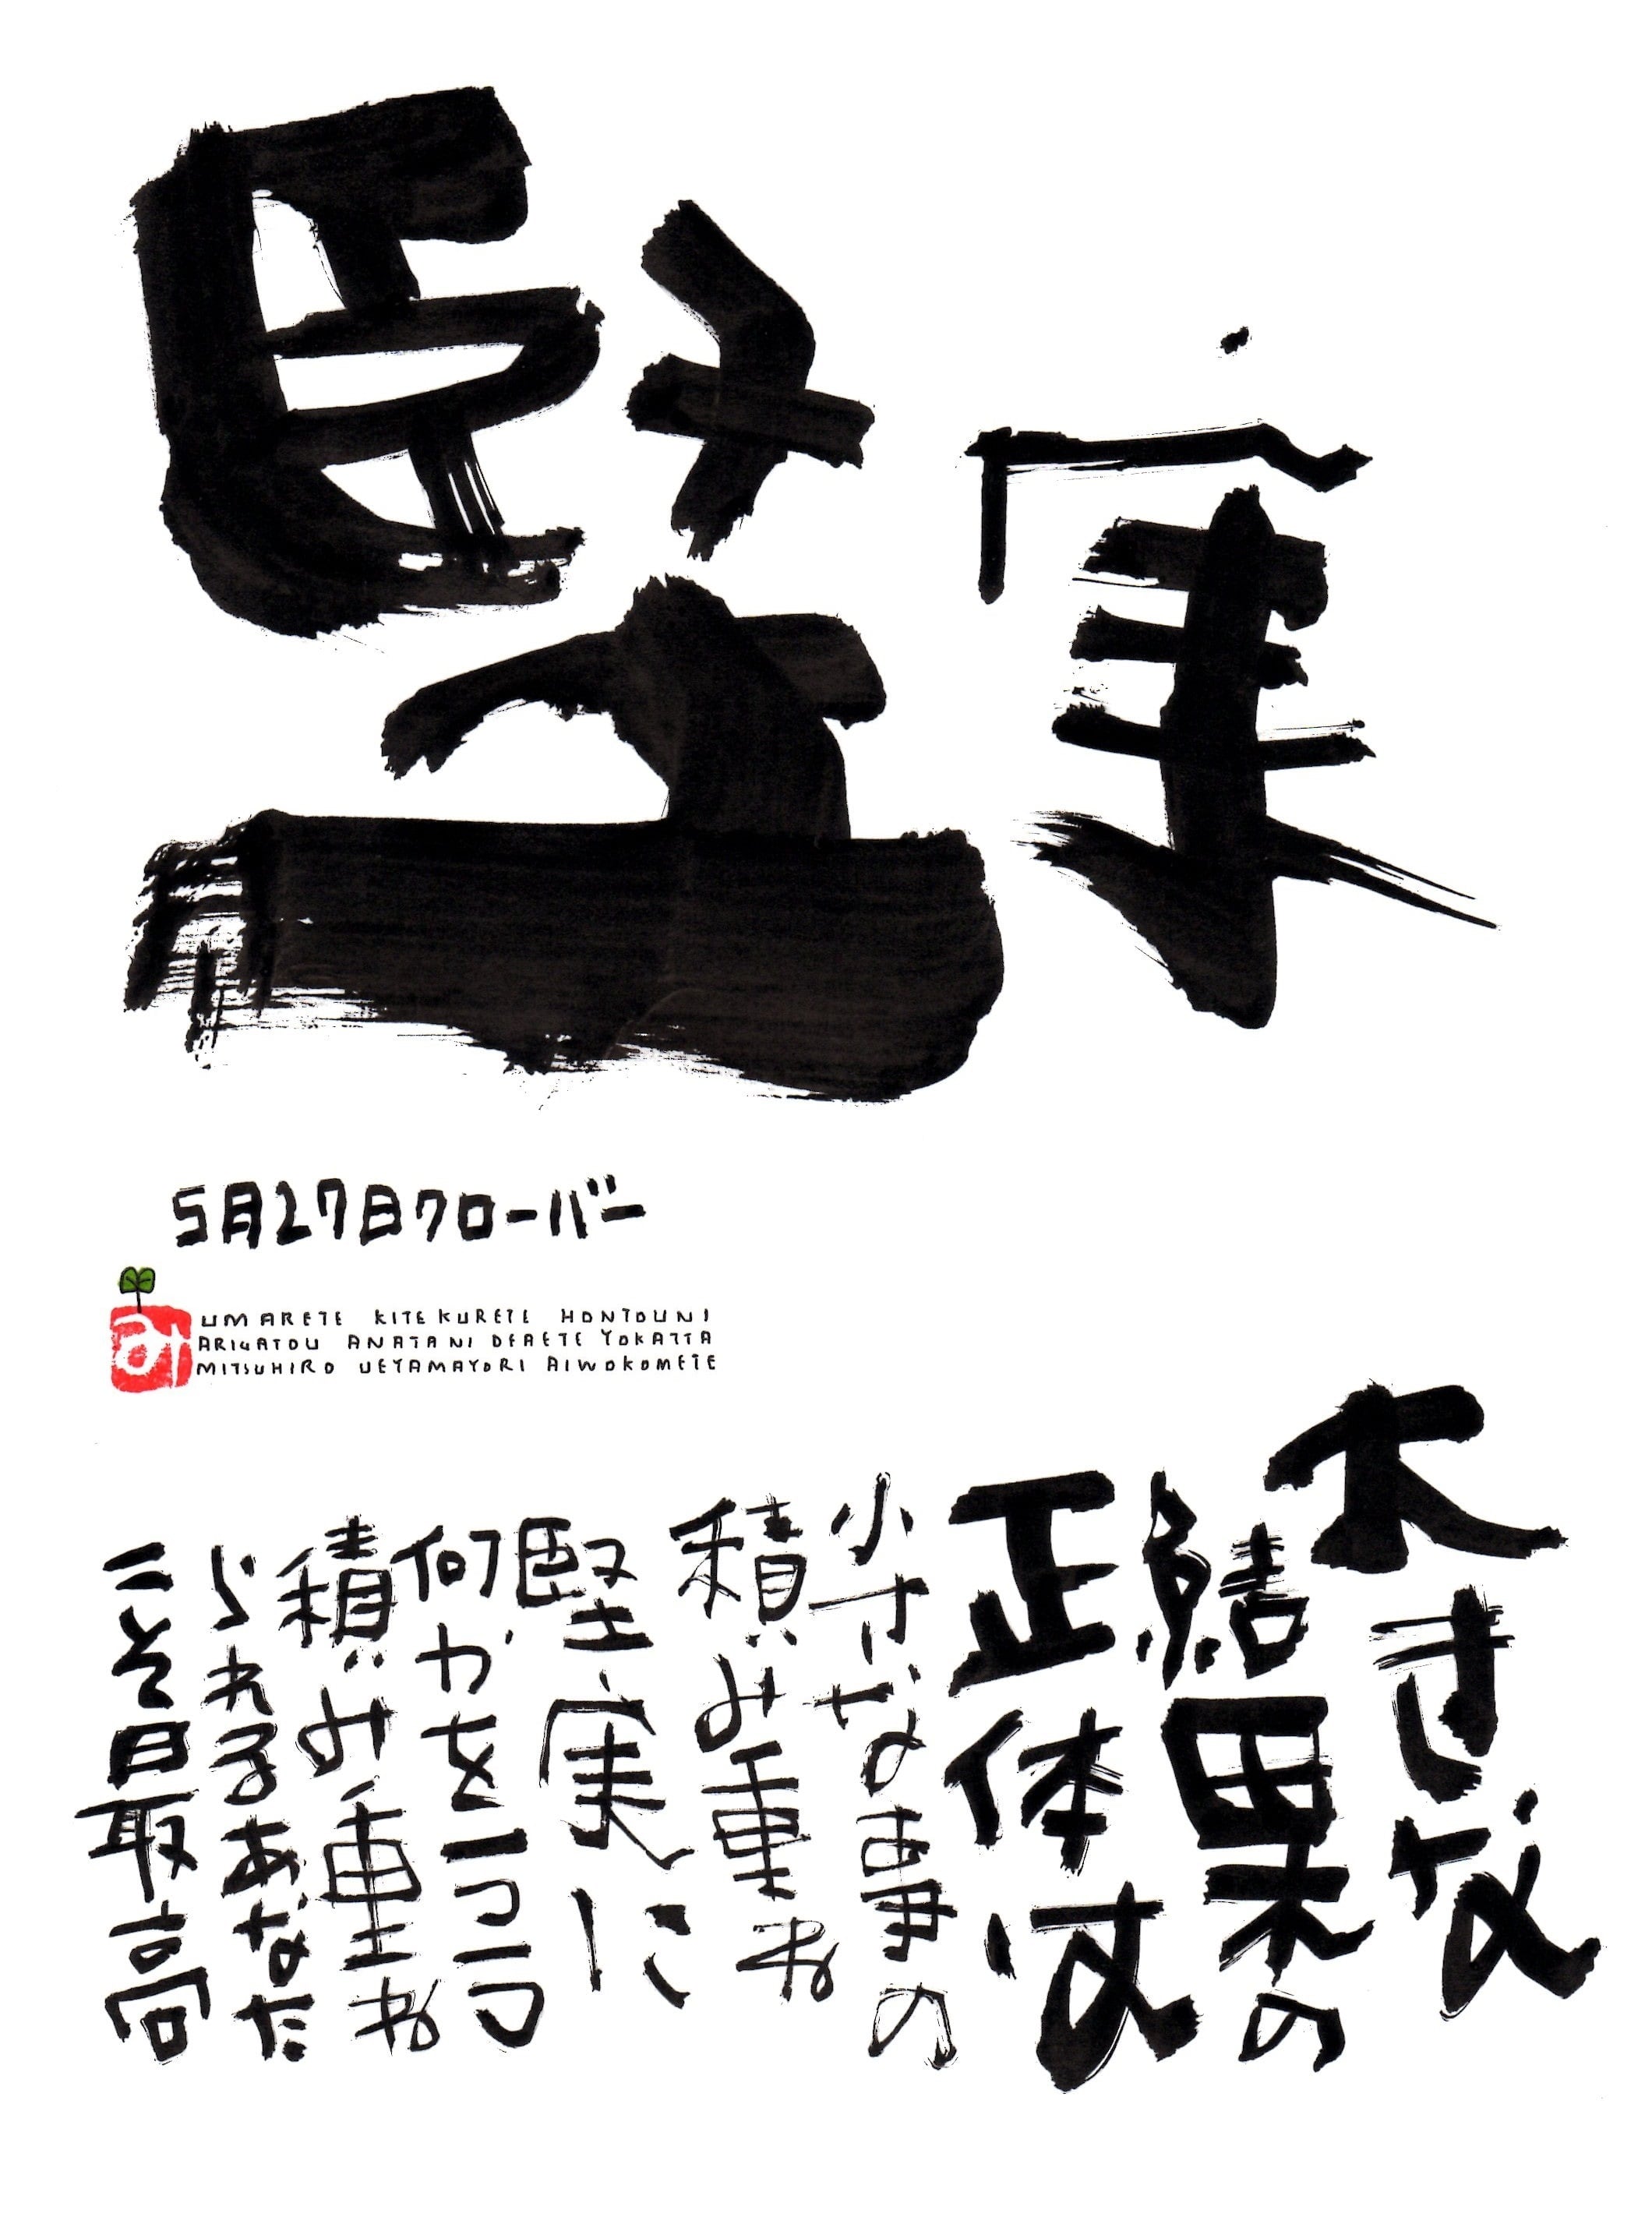 堅実
5月27日クローバー
UMARETE KITEKURETE HONTOUNI
ARIGATOU ANATANI DEAETE YOKATTA
MITSUHIRO UEYAMAYORI AIWOKOMETE
大きな
結果の
正体は
小さな事の
積み重ね
堅実に
何かを一つ一つ
積み重ね
られるあなた
こそ最高